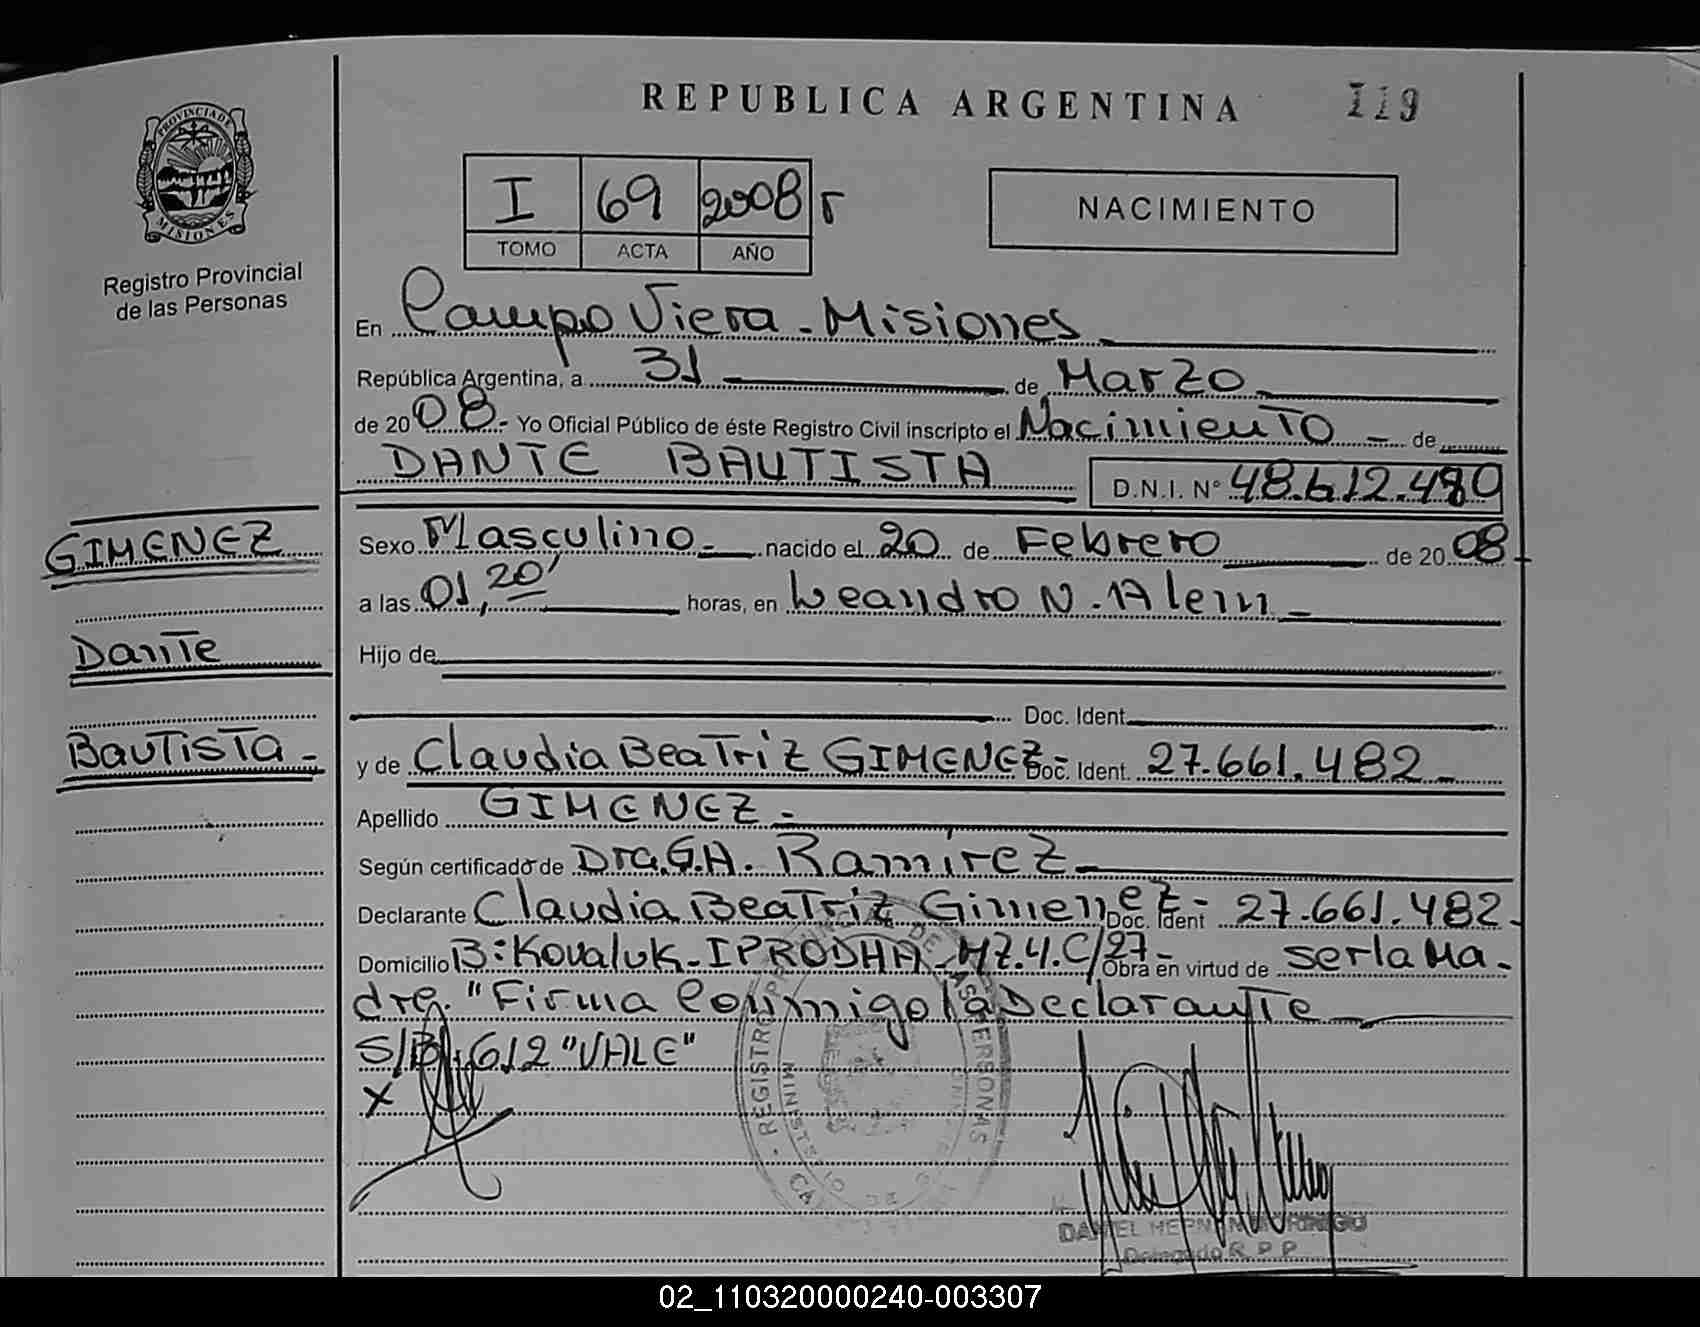 REPUBLICA ARGENTINA 119
PROVINCIA DE
MISIONES
Registro Provincial
de las Personas
I 69 2008 r
TOMO ACTA AÑO
NACIMIENTO
En Campo Viera - Misiones
República Argentina, a 31 de Marzo
de 2008.- Yo Oficial Público de éste Registro Civil inscripto el Nacimiento - de
DANTE BAUTISTA D.N.I. N° 48.612.480
GIMENEZ
Sexo Masculino - nacido el 20 de Febrero de 2008
a las 01,20' horas, en Leandro N. Alem -
Dante
Hijo de
Doc. Ident.
Bautista -
y de Claudia Beatriz GIMENEZ - Doc. Ident. 27.661.482 -
Apellido GIMENEZ -
Según certificado de Dra. G.A. Ramirez -
Declarante Claudia Beatriz Gimenez - Doc. Ident 27.661.482.
Domicilio B: Kovaluk - IPRODHA - MZ.4.C/27 - Obra en virtud de ser la Ma-
dre. "Firma Conmigo la Declarante
S/B: 612 "VALE"
X
REGISTRO DE LAS PERSONAS
MINISTERIO
DANIEL
Delegado R.P.P.
02_110320000240-003307